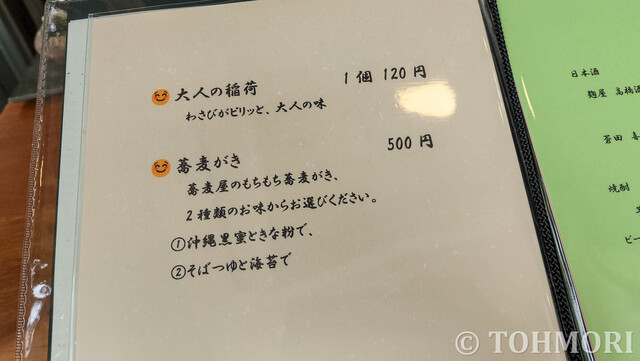 大人の稲荷 1個 120円
わさびがピリッと、大人の味
蕎麦がき 500円
蕎麦屋のもちもち蕎麦がき、
2種類のお味からお選びください。
①沖縄黒蜜ときな粉で、
②そばつゆと海苔で
日本酒
麹屋 高橋酒
蒼田 喜
焼酎
ビー
© TOHMORI